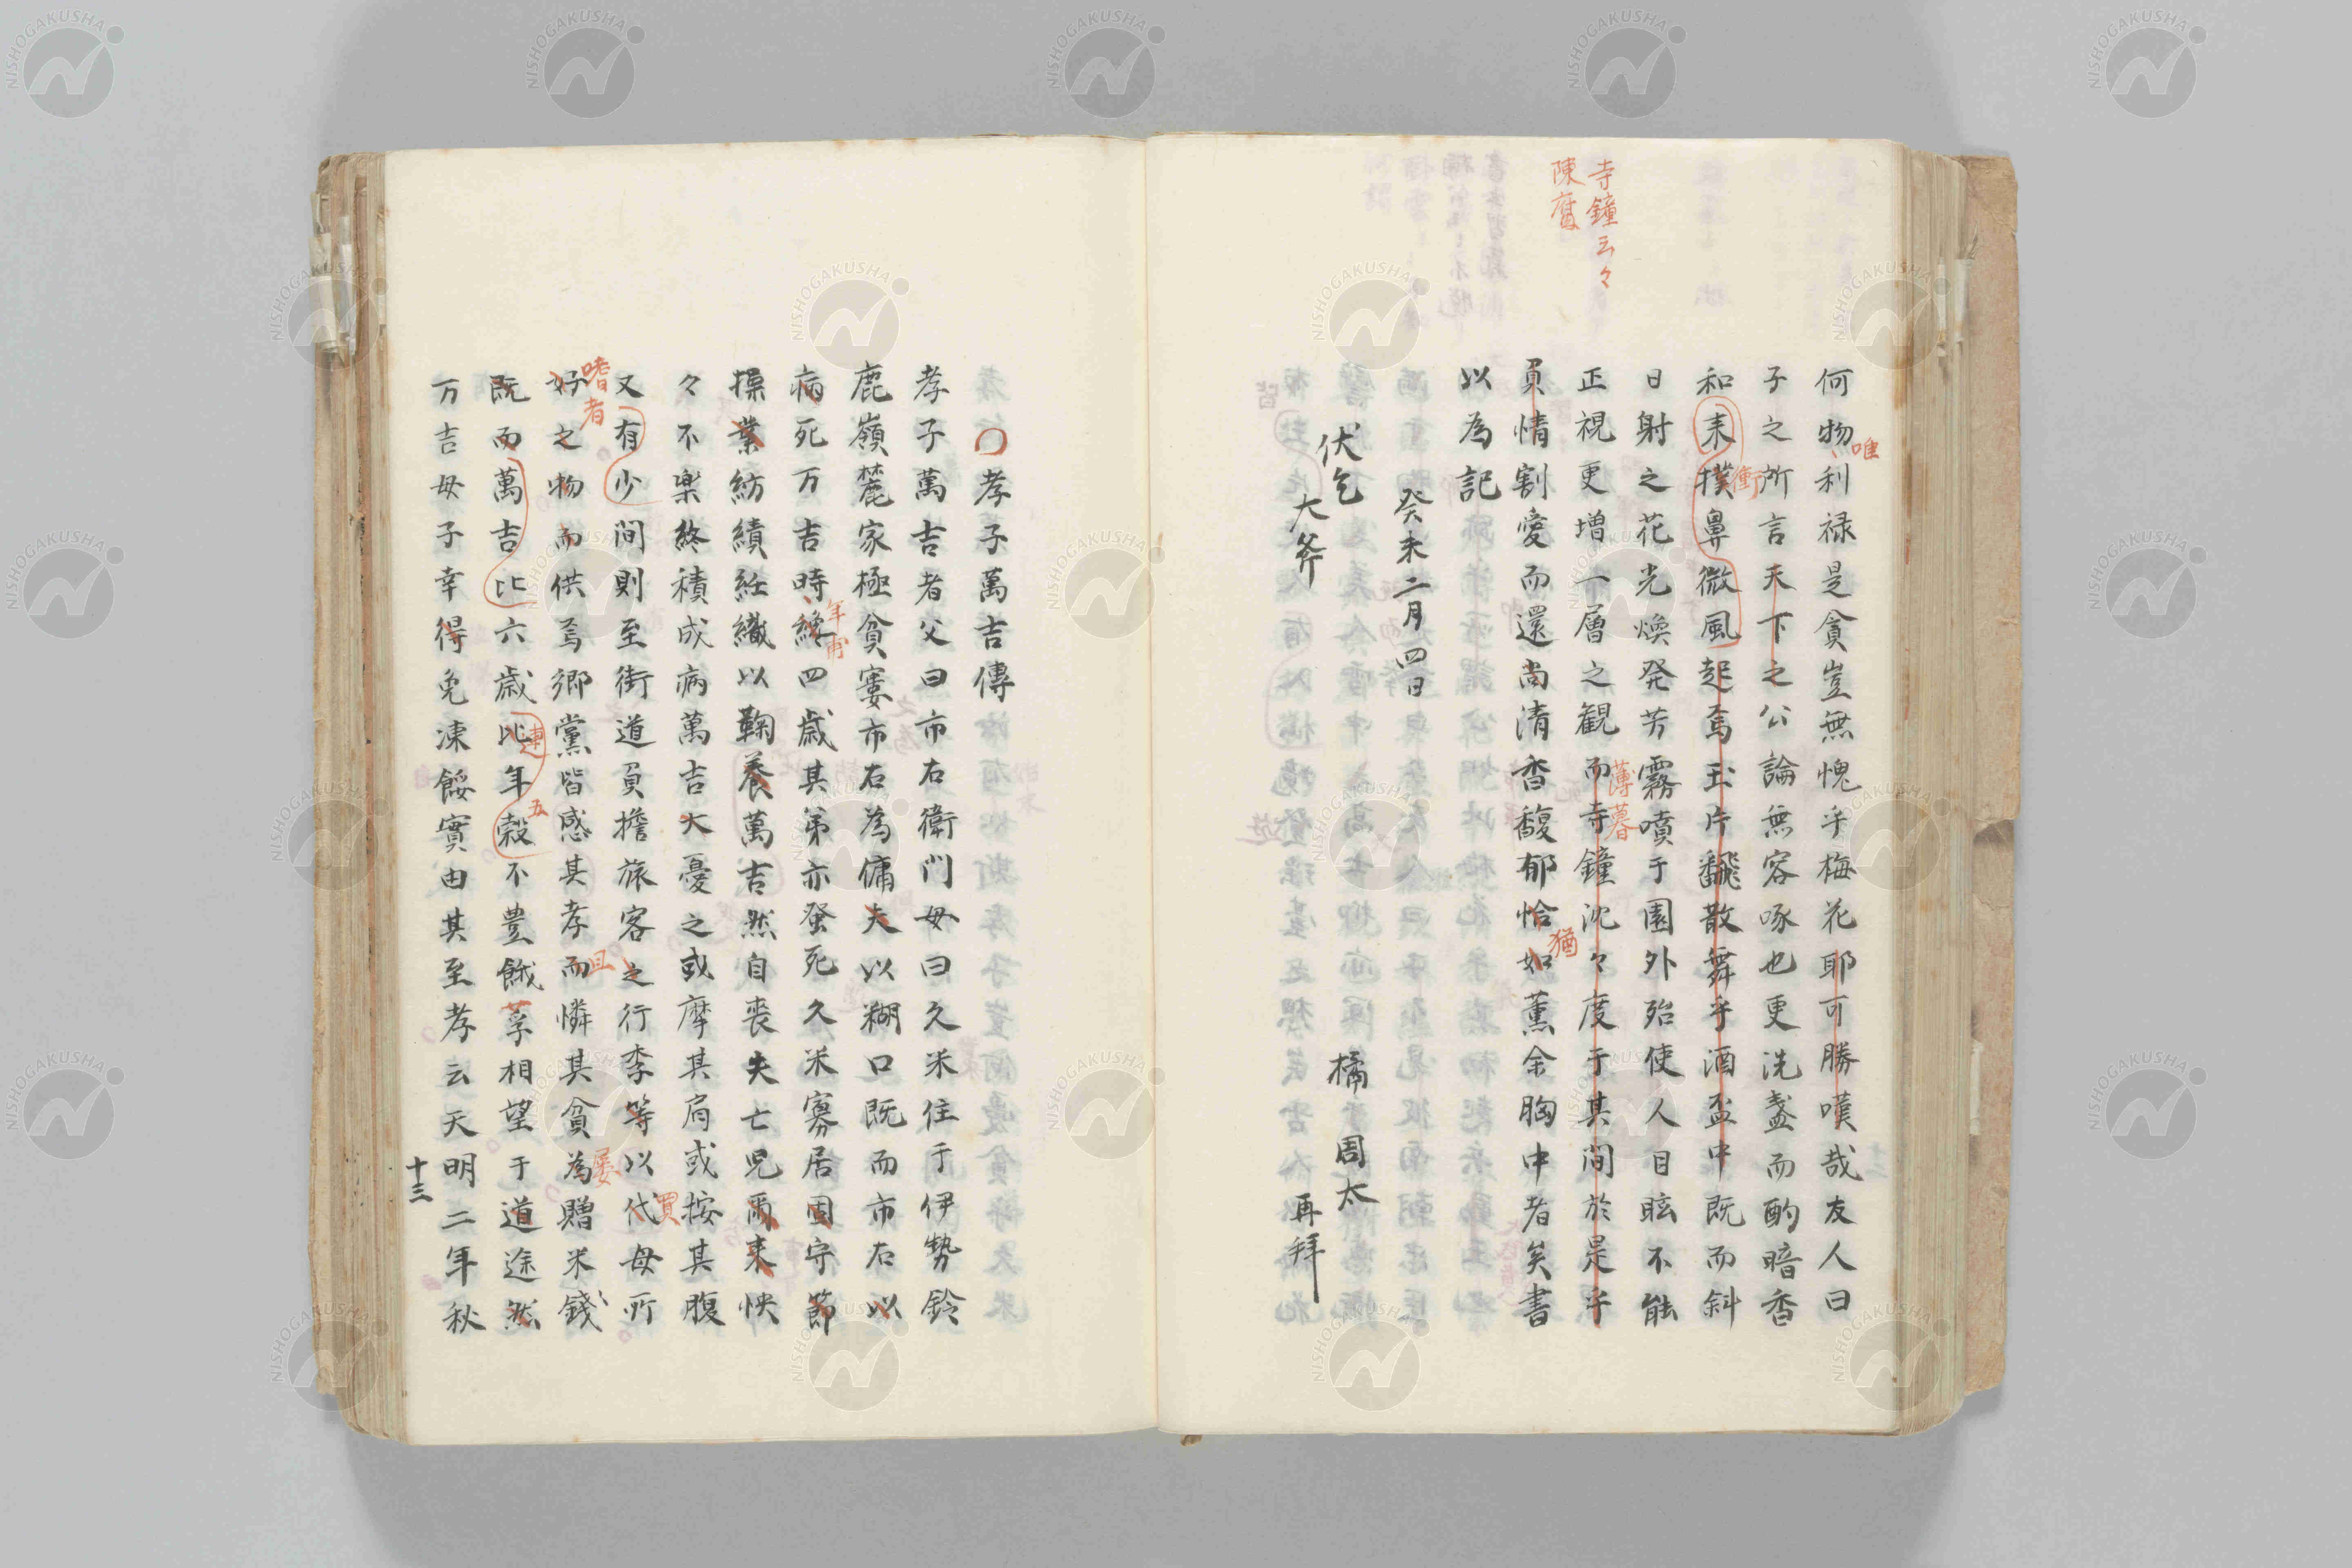 寺鐘云々
陳腐
何物利禄是貪豈無愧乎梅花耶可勝嘆哉友人曰
唯
子之所言天下之公論無容啄也更洗盞而酌暗香
和来撲鼻微風起焉玉片飜散舞乎酒盃中既而斜
衝
日射之花光煥発芳霧噴于園外殆使人目眩不能
正視更増一層之観而寺鐘沈々度于其間於是乎
薄暮
負情割愛而還尚清香馥郁恰如薫余胸中者矣書
猶
以為記
癸未二月四日
橘周太
再拝
伏乞
大斧
孝子萬吉傳
孝子萬吉者父曰市右衛門母曰久米住于伊勢鈴
鹿嶺麓家極貧窶市右為傭夫以糊口既而市右以
病死万吉時纔四歳其弟亦蚤死久米寡居固守節
年甫
操業紡績紝織以鞠養萬吉然自喪失亡児爾来怏
々不楽終積成病萬吉大憂之或摩其肩或按其腹
又有少間則至街道負擔旅客之行李等以代母所
買
嗜者
好之物而供焉郷黨皆感其孝而憐其貧為贈米錢
且
屡
既而萬吉比六歳比年穀不豊餓莩相望于道途然
連
五
万吉母子幸得免凍餒實由其至孝云天明二年秋
十三
NISHOGAKUSHA